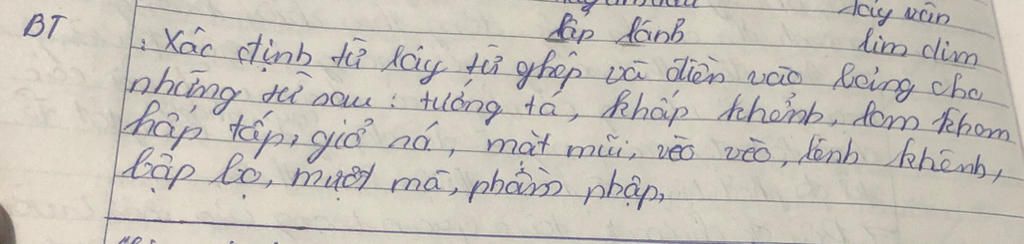 láy vần
lấp lánh
lim dim
BT : Xác định từ láy từ ghép và điền vào bảng cho
những từ sau : tướng tá, khấp khểnh, lom khom
hấp tấp, giỏ ná, mặt mũi, vèo vèo, lênh khênh,
bập bẹ, mượt mà, phầm phập,